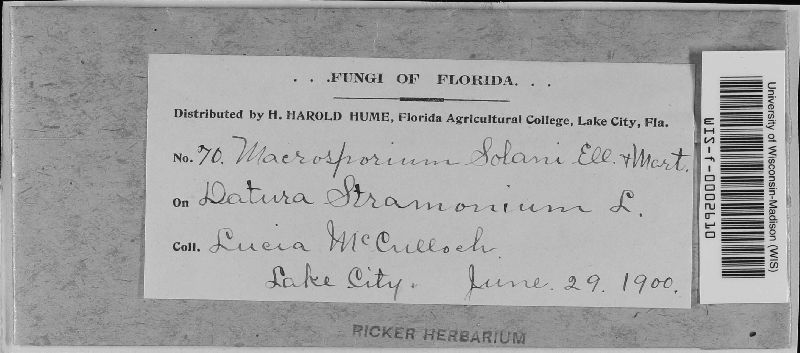 . . .FUNGI OF FLORIDA. . .
Distributed by H. HAROLD HUME, Florida Agricultural College, Lake City, Fla.
No. 70. Macrosporium Solani Ell. & Mart.
On Datura Stramonium L.
Coll. Lucia McCulloch
Lake City. June. 29. 1900.
RICKER HERBARIUM
University of Wisconsin-Madison (WIS)
WIS-f-0002910